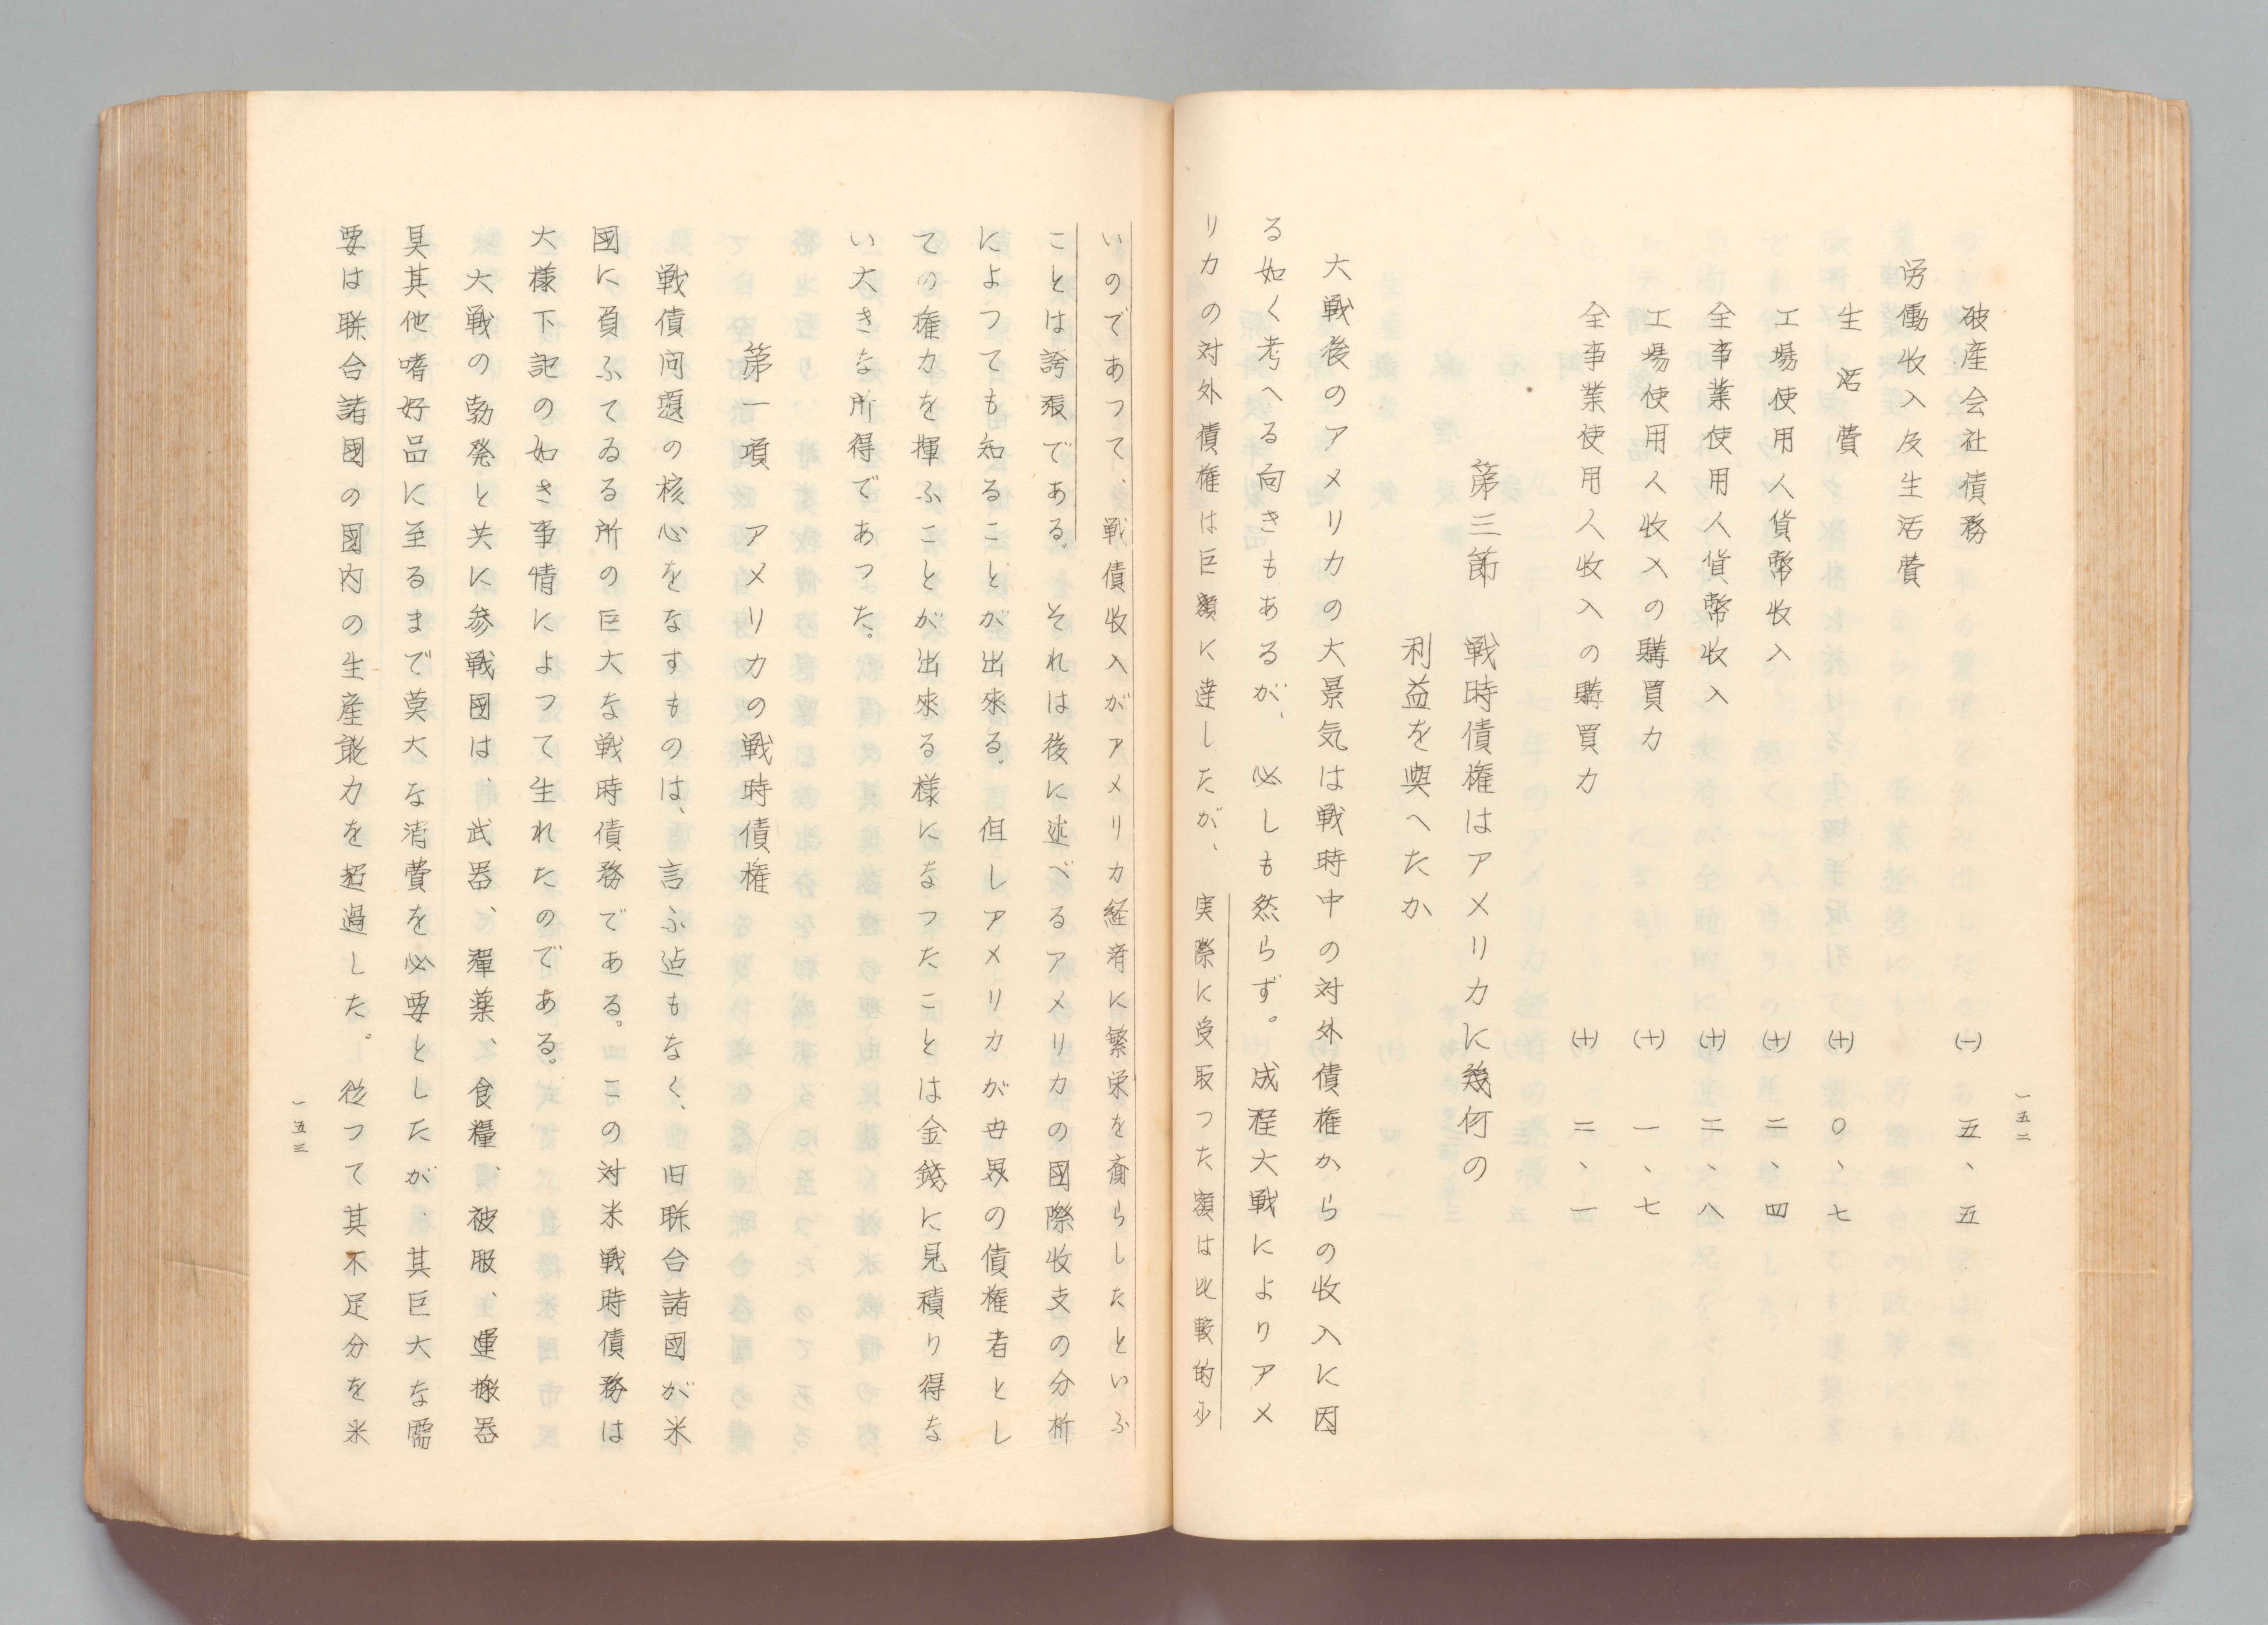 一五二
破産会社債務 (一) 五、五
労働收入及生活費
生活費 (十) 〇、七
工場使用人貨幣收入 (十) 二、四
全事業使用人貨幣收入 (十) 二、八
工場使用人收入の購買力 (十) 一、七
全事業使用人收入の購買力 (十) 二、一
第三節 戦時債権はアメリカに幾何の
利益を與へたか
大戦後のアメリカの大景気は戦時中の対外債権からの收入に因
る如く考へる向きもあるが、必しも然らず。成程大戦によりアメ
リカの対外債権は巨額に達したが、実際に受取つた額は比較的少
いのであつて、戦債收入がアメリカ経済に繁栄を齎らしたといふ
ことは誇張である。それは後に述べるアメリカの國際收支の分析
によつても知ることが出來る。但しアメリカが世界の債権者とし
ての権力を揮ふことが出來る様になつたことは金錢に見積り得な
い大きな所得であつた。
第一項 アメリカの戦時債権
戦債问題の核心をなすものは、言ふ迠もなく、旧聨合諸國が米
國に負ふてゐる所の巨大な戦時債務である。この対米戦時債務は
大様下記の如き事情によつて生れたのである。
大戦の勃発と共に参戦國は、武器、彈薬、食糧、被服、運搬器
具其他嗜好品に至るまで莫大な消費を必要としたが、其巨大な需
要は聨合諸國の國内の生産能力を超過した。従つて其不足分を米
一五三